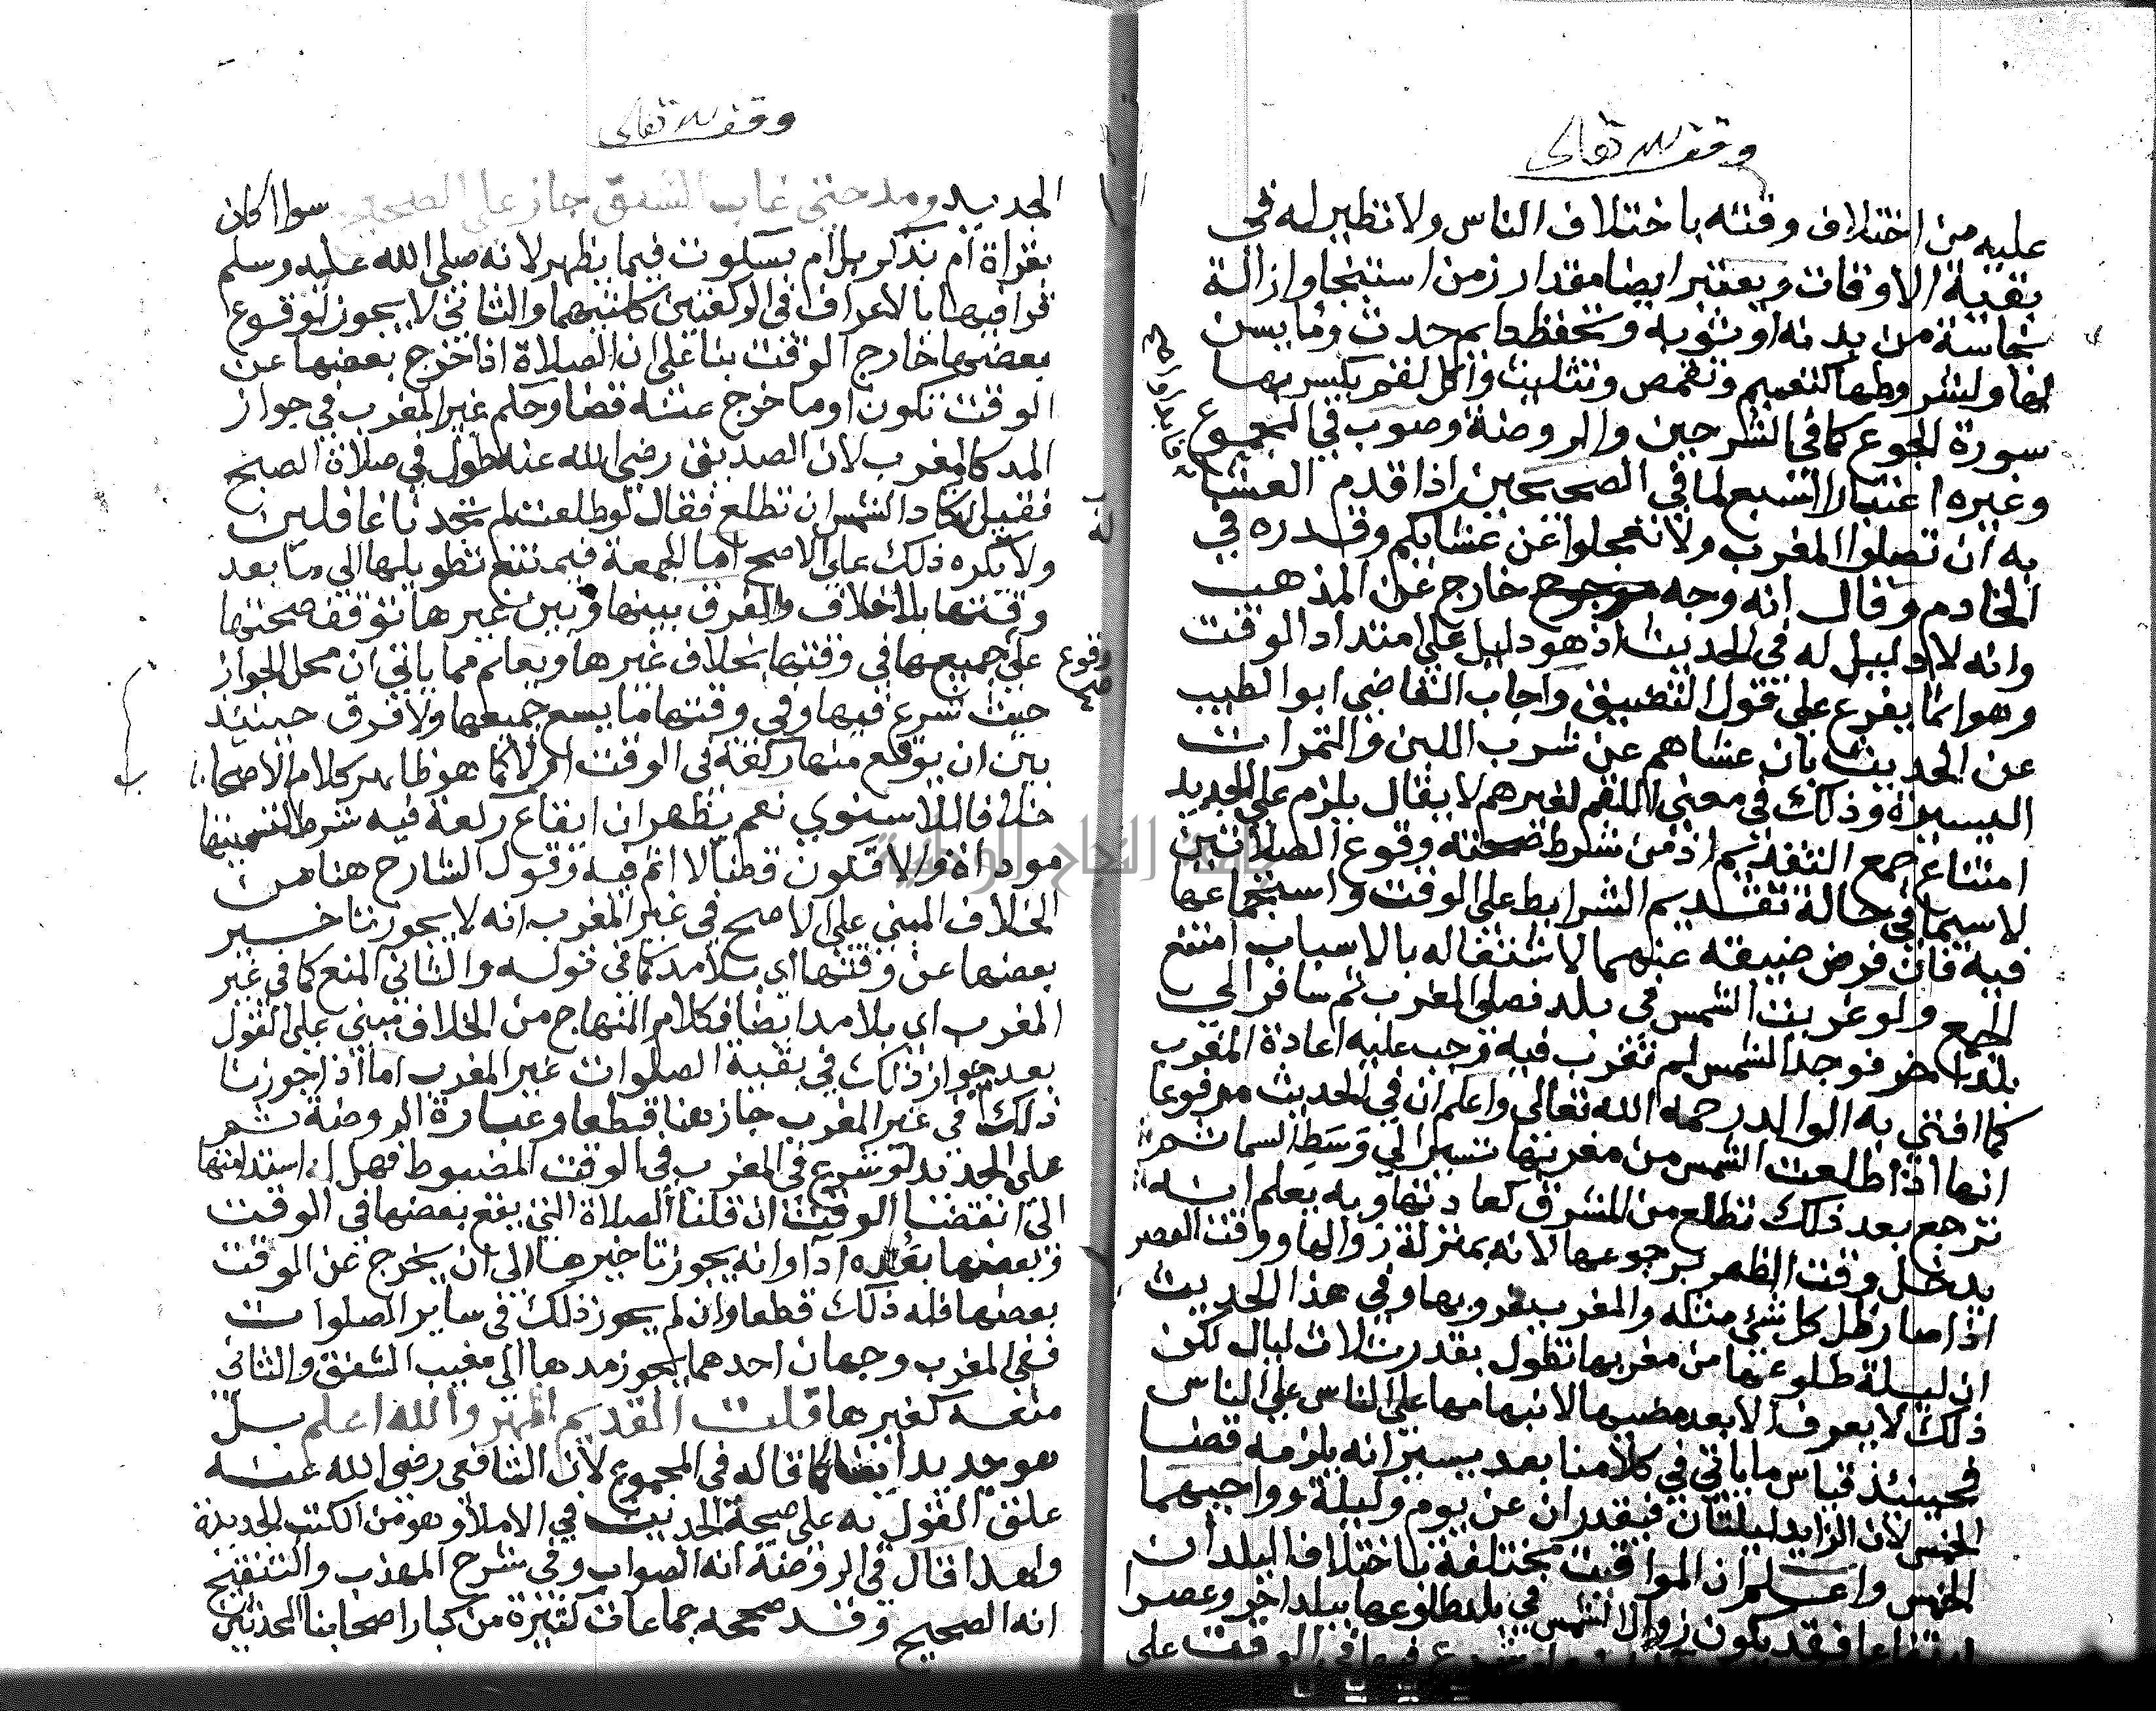 وقف لله تعالى
عليه من اختلاف وقته باختلاف الناس ولا نظير له في
بقية الاوقات ويعتبر ايضا مقدار زمن استنجا وازالة
نجاسة من بدنه او ثوبه وتحفظ دايم حدث وما يسن
لها ولشروطها كتعميم وتقمص وتثليث واكل لقم يكسر بها
سورة الجوع كما في الشرحين والروضة وصوب في المجموع
وغيره اعتبار الشبع لما في الصحيحين اذا قدم العشا
به ان تصلوا المغرب ولا تعجلوا عن عشايكم وقدره في
الخادم وقال انه وجه خارج عن المذهب
وانه لا دليل له في الحديث اذ هو دليل على امتداد الوقت
وهو انما يفرع على قول التضييق واجاب القاضي ابو الطيب
عن الحديث بان عشاهم عن شرب اللبن والتمرات
اليسيرة وذلك في معنى اللقم لغيرهم لا يقال يلزم على الجديد
امتناع جمع التقديم اذ من شرط صحته وقوع الصلاتين
لا سيما في حالة تقديم الشرايط على الوقت واستجماعها
فيه فان فرض ضيقه عنهما لاشتغاله بالاسباب امتنع
الجمع ولو غربت الشمس في بلد فصلى المغرب ثم سافر الى
بلد اخر فوجد الشمس لم تغرب فيه وجب عليه اعادة المغرب
كما افتى به الوالد رحمه الله تعالى واعلم ان في الحديث مرفوعا
انها اذا طلعت الشمس من مغربها تسير الي وسط السما ثم
ترجع بعد ذلك تطلع من المشرق كعادتها وبه يعلم انه
يدخل وقت الظهر برجوعها لانه بمنزلة زوالها ووقت العصر
اذا صار ظل كل شئ مثله والمغرب بغروبها وفي هذا الحديث
ان ليلة طلوعها من مغربها تطول بقدر ثلاث ليال لكن
ذلك لا يعرف الا بعد مضيها لانبهامها على الناس على الناس
فحينئذ قياس ما ياتي في كلامنا بعد يسير انه يلزمه قضا
الخمس لان الزايد ليلتان فيقدران عن يوم وليلة وواجبهما
الخمس واعلم ان المواقيت مختلفة باختلاف البلدان
ارتفاعا فقد يكون زوال الشمس في بلد طلوعها ببلد اخر وعصرا
وقف لله تعالى
الجديد ومد حتى غاب الشفق جاز على الصحيح سوا اكان
بقراة ام بذكر بل ام بسكوت فيما يظهر لانه صلى الله عليه وسلم
قرا فيها بالاعراف في الركعتين كلتيهما والثاني لا يجوز لوقوع
بعضها خارج الوقت بنا على ان الصلاة اذا خرج بعضها عن
الوقت تكون او ما خرج عنه قضا وحكم غير المغرب في جواز
المد كالمغرب لان الصديق رضي الله عنه طول في صلاة الصبح
فقيل له كادا الشمس ان تطلع فقال لو طلعت لم تجدنا غافلين
ولا يكره ذلك على الاصح اما الجمعة فيمتنع تطويلها الى ما بعد
وقتها بلا خلاف والفرق بينها وبين غيرها توقف صحتها
وقوع على جميعها في وقتها بخلاف غيرها ويعلم مما ياتي ان محل الجواز
حيث شرع فيها وفي وقتها ما يسع جميعها ولا فرق حينئذ
بين ان يوقع منها ركعة في الوقت ام لا كما هو ظاهر كلام الاصحاب
خلافا للاسنوي نعم يظهر ان ايقاع ركعة فيه شرط لتسميتها
موداة والا فتكون قضا لا اثم فيه وقول الشارح هنا من
الخلاف المبني على الاصح في غير المغرب انه لا يجوز تاخير
بعضها عن وقتها اي بلا مد كما في قوله والثاني المنع كما في غير
المغرب اي بلا مد ايضا فكلام المنهاج من الخلاف مبني على القول
بعدم جواز ذلك في بقية الصلوات غير المغرب اما اذا جوزنا
ذلك في غير المغرب جاز هنا قطعا وعبارة الروضة ثم
على الجديد لو شرع في المغرب في الوقت المضبوط فهل له استدامتها
الى انقضا الوقت ان قلنا الصلاة التي يقع بعضها في الوقت
وبعضها بعده ادا وانه يجوز تاخيرها الى ان يخرج عن الوقت
بعضها فله ذلك قطعا وان لم يجوز ذلك في ساير الصلوات
ففي المغرب وجهان احدهما يجوز مدها الى مغيب الشفق والثاني
منعه كغيرها قلت القديم اظهر والله اعلم بل
هو جديد ايضا كما قاله في المجموع لان الشافعي رضي الله عنه
علق القول به على صحة الحديث في الاملا وهو من الكتب الجديدة
ولهذا قال في الروضة انه الصواب وفي شرح المهذب والتنقيح
انه الصحيح وقد صححه جماعات كثيرة من كبار اصحابنا المحدثين